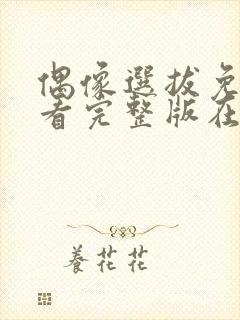 偶像選拔免
看完整版在
養花花